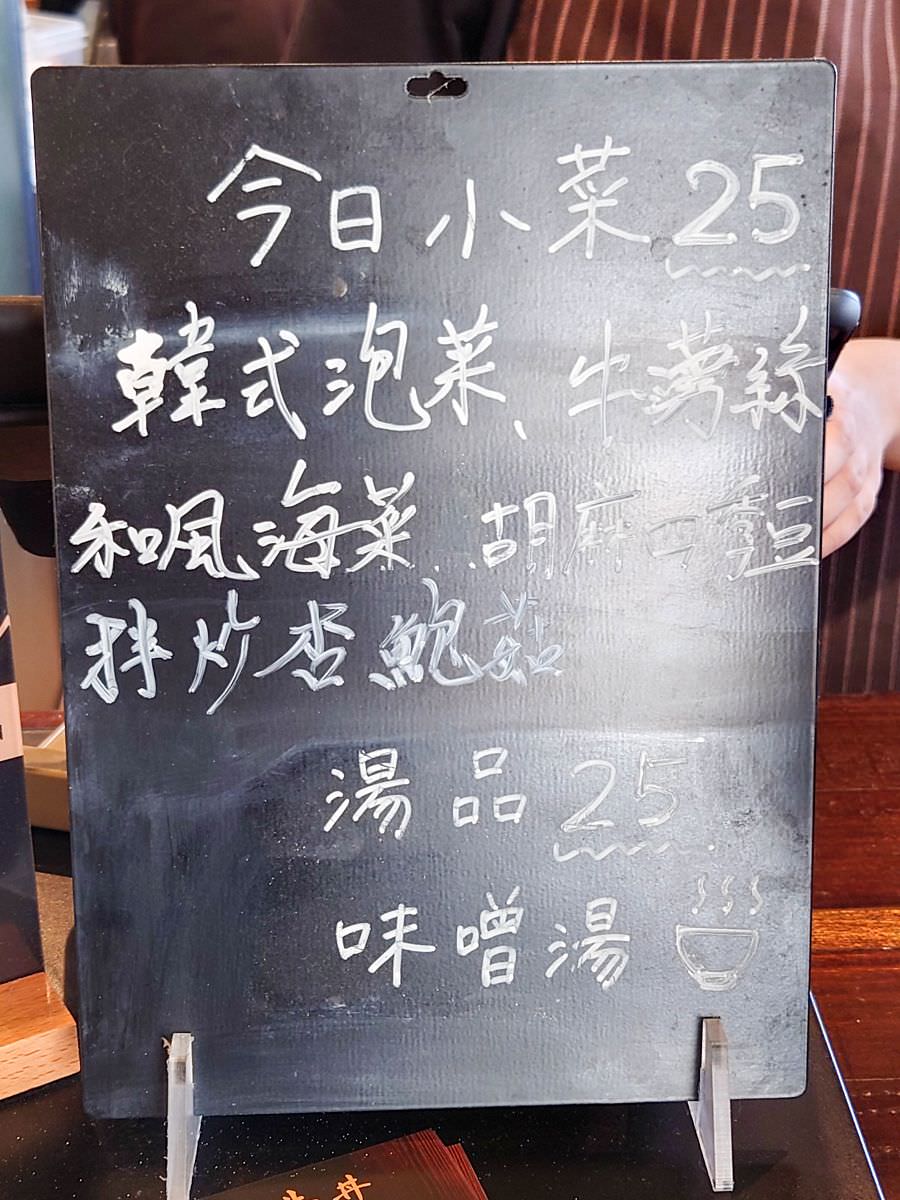 今日小菜 25
韓式泡菜、牛蒡絲
和風海菜、胡麻四季豆
拌炒杏鮑菇
湯品 25
味噌湯
丼